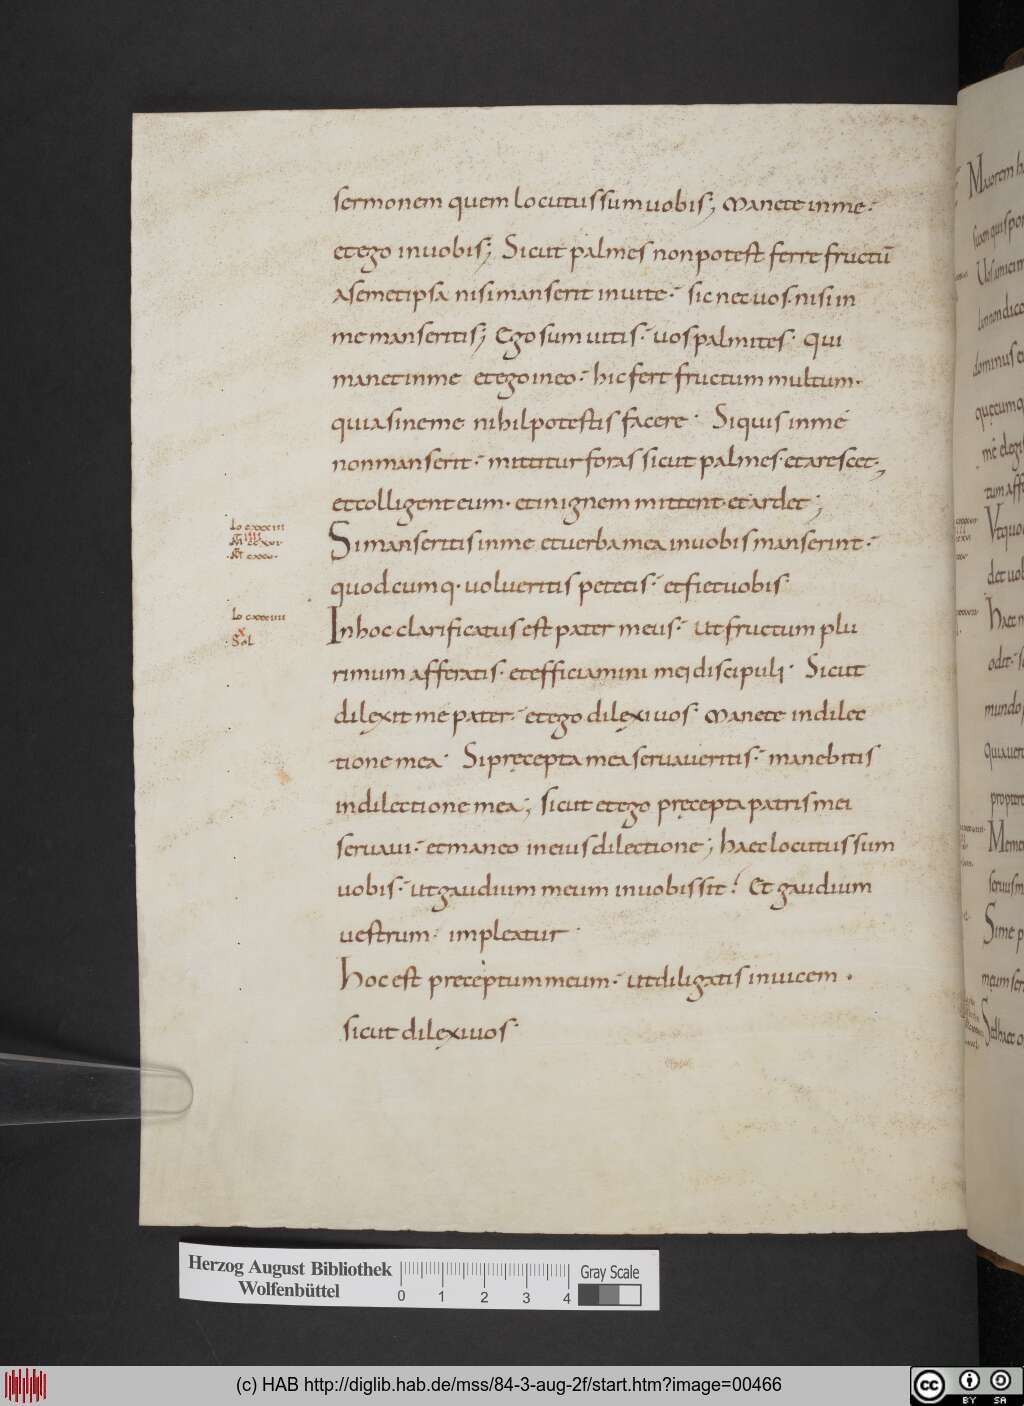 sermonem quem locutus sum uobis; Manete in me·
et ego in uobis; Sicut palmes non potest ferre fructū
a semetipsa nisi manserit in uite· sic nec uos· nisi in
me manseritis; Ego sum uitis· uos palmites· Qui
manet in me et ego in eo· hic fert fructum multum·
quia sine me nihil potestis facere· Si quis in me
non manserit· mittitur foras sicut palmes· et arescet;
et colligent eum· et in ignem mittent· et ardet;
Io cxxxiii
iiii
Si manseritis in me et uerba mea in uobis manserint·
quodcumq· uolueritis petetis· et fiet uobis·
Io cxxxiiii
x
Sol
In hoc clarificatus est pater meus· ut fructum plu
rimum afferatis· et efficiamini mei discipuli· Sicut
dilexit me pater· et ego dilexi uos· Manete in dilec
tione mea· Si pręcepta mea seruaueritis· manebitis
in dilectione mea; sicut et ego pręcepta patris mei
seruaui· et maneo in eius dilectione; haec locutus sum
uobis· ut gaudium meum in uobis sit! Et gaudium
uestrum· impleatur·
Hoc est preceptum meum· ut diligatis inuicem·
sicut dilexi uos·
Maiorem
Uos
non dico
dominus
me eleg
Vt quo
det uob
odit·
mundo
quia
Memo
Si me p
Sed haec
Herzog August Bibliothek
Wolfenbüttel
0 1 2 3 4
Gray Scale
(c) HAB http://diglib.hab.de/mss/84-3-aug-2f/start.htm?image=00466
cc BY SA